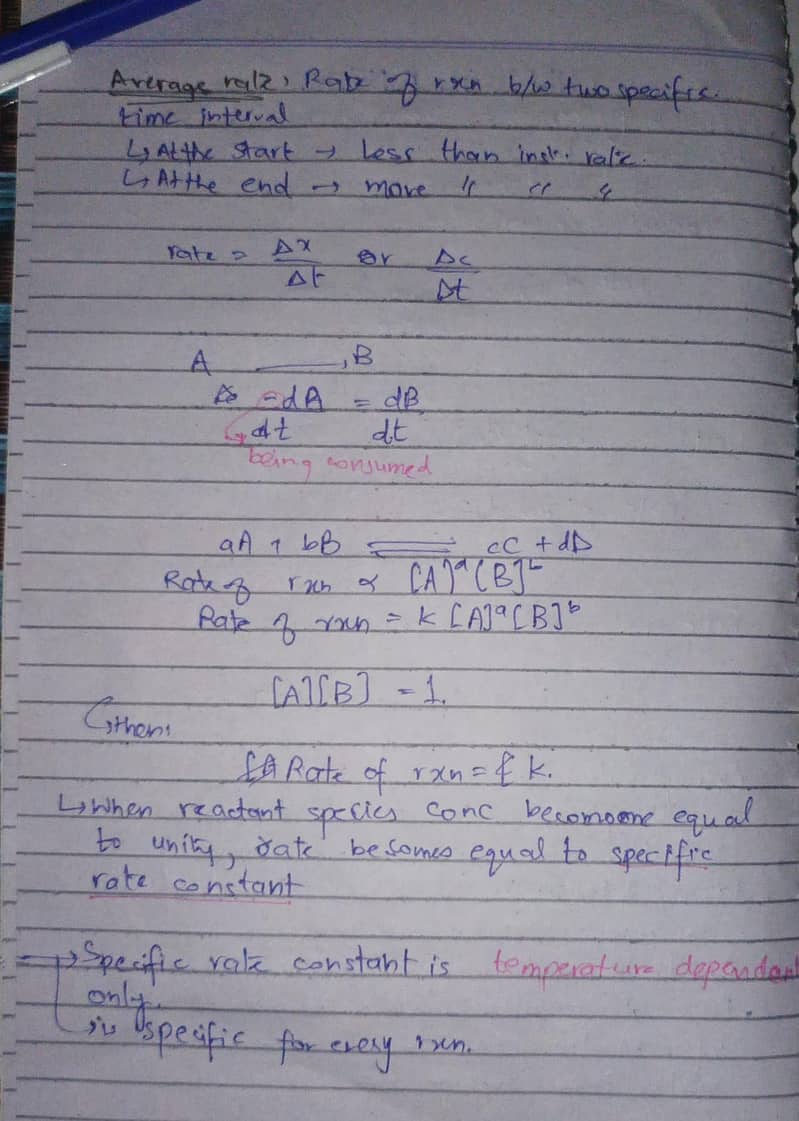 Average rate, Rate of rxn b/w two specific
time interval
↳ At the start → less than inst. rate.
↳ At the end → more " " "
rate = Δx/Δt or Δc/Δt
A ⟶ B
-dA/dt = dB/dt
being consumed
aA + bB ⇌ cC + dD
Rate of rxn ∝ [A]ᵃ[B]ᵇ
Rate of rxn = k [A]ᵃ[B]ᵇ
[A][B] = 1.
↳ then,
Rate of rxn = k.
↳ When reactant species conc becomome equal
to unity, rate becomes equal to specific
rate constant
→ Specific rate constant is temperature dependent
only.
↳ is specific for every rxn.